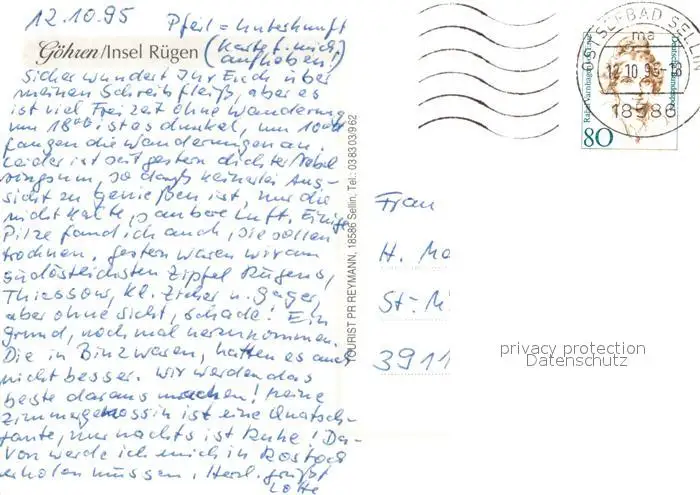 12.10.95 Pfeil = Unterkunft
Göhren/Insel Rügen (Karte f. mich
aufheben!)
Sicher wundert Ihr Euch über
meinen Schreibfleiß, aber es
ist viel Freizeit ohne Wanderung
um 18⁰⁰ ist es dunkel, um 10⁰⁰
fangen die Wanderungen an.
Leider ist seit gestern dichter Nebel
ringsum, so daß keinerlei Aus-
sicht zu genießen ist, nur die
nicht kalte, saubere Luft. Einige
Pilze fand ich auch, die sollen
trocknen. Gestern waren wir am
südöstlichsten Zipfel Rügens,
Thiessow, Kl. Zicker u. Gager,
aber ohne Sicht, schade! Ein
Grund, nochmal herzukommen.
Die in Binz waren, hatten es auch
nicht besser. Wir werden das
beste daraus machen! Meine
Zimmergenossin ist eine Quatsch-
tante, nur nachts ist Ruhe! Da-
von werde ich mich in Rostock
erholen müssen. Herzl. grüßt
Lotte
TOURIST PR REYMANN, 18586 Sellin, Tel.: 038303/962
OSTSEEBAD SELLIN
ma
12.10.95-18
18586
Rahel Varnhagen von Ense
Deutsche Bundespost
80
Frau
H. Ma
St.-M
3911
privacy protection
Datenschutz